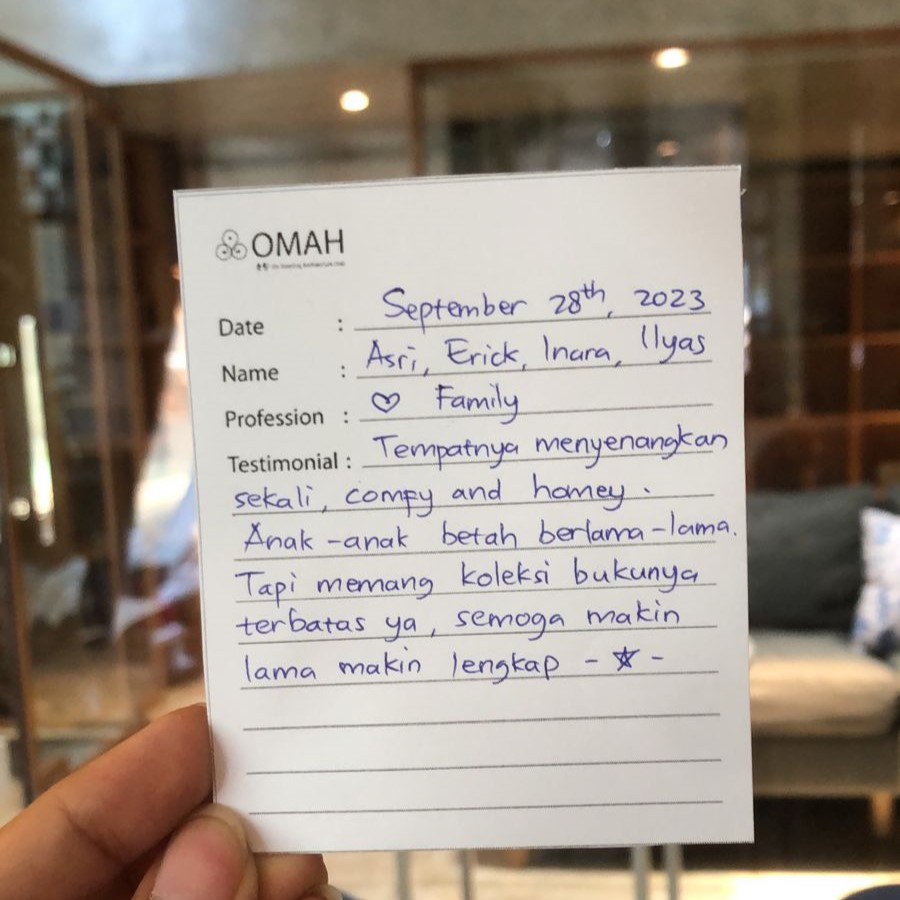 OMAH
Date : September 28th, 2023
Name : Asri, Erick, Inara, Ilyas
Profession : ♡ Family
Testimonial : Tempatnya menyenangkan
sekali, compy and homey.
Anak-anak betah berlama-lama.
Tapi memang koleksi bukunya
terbatas ya, semoga makin
lama makin lengkap - ☆ -